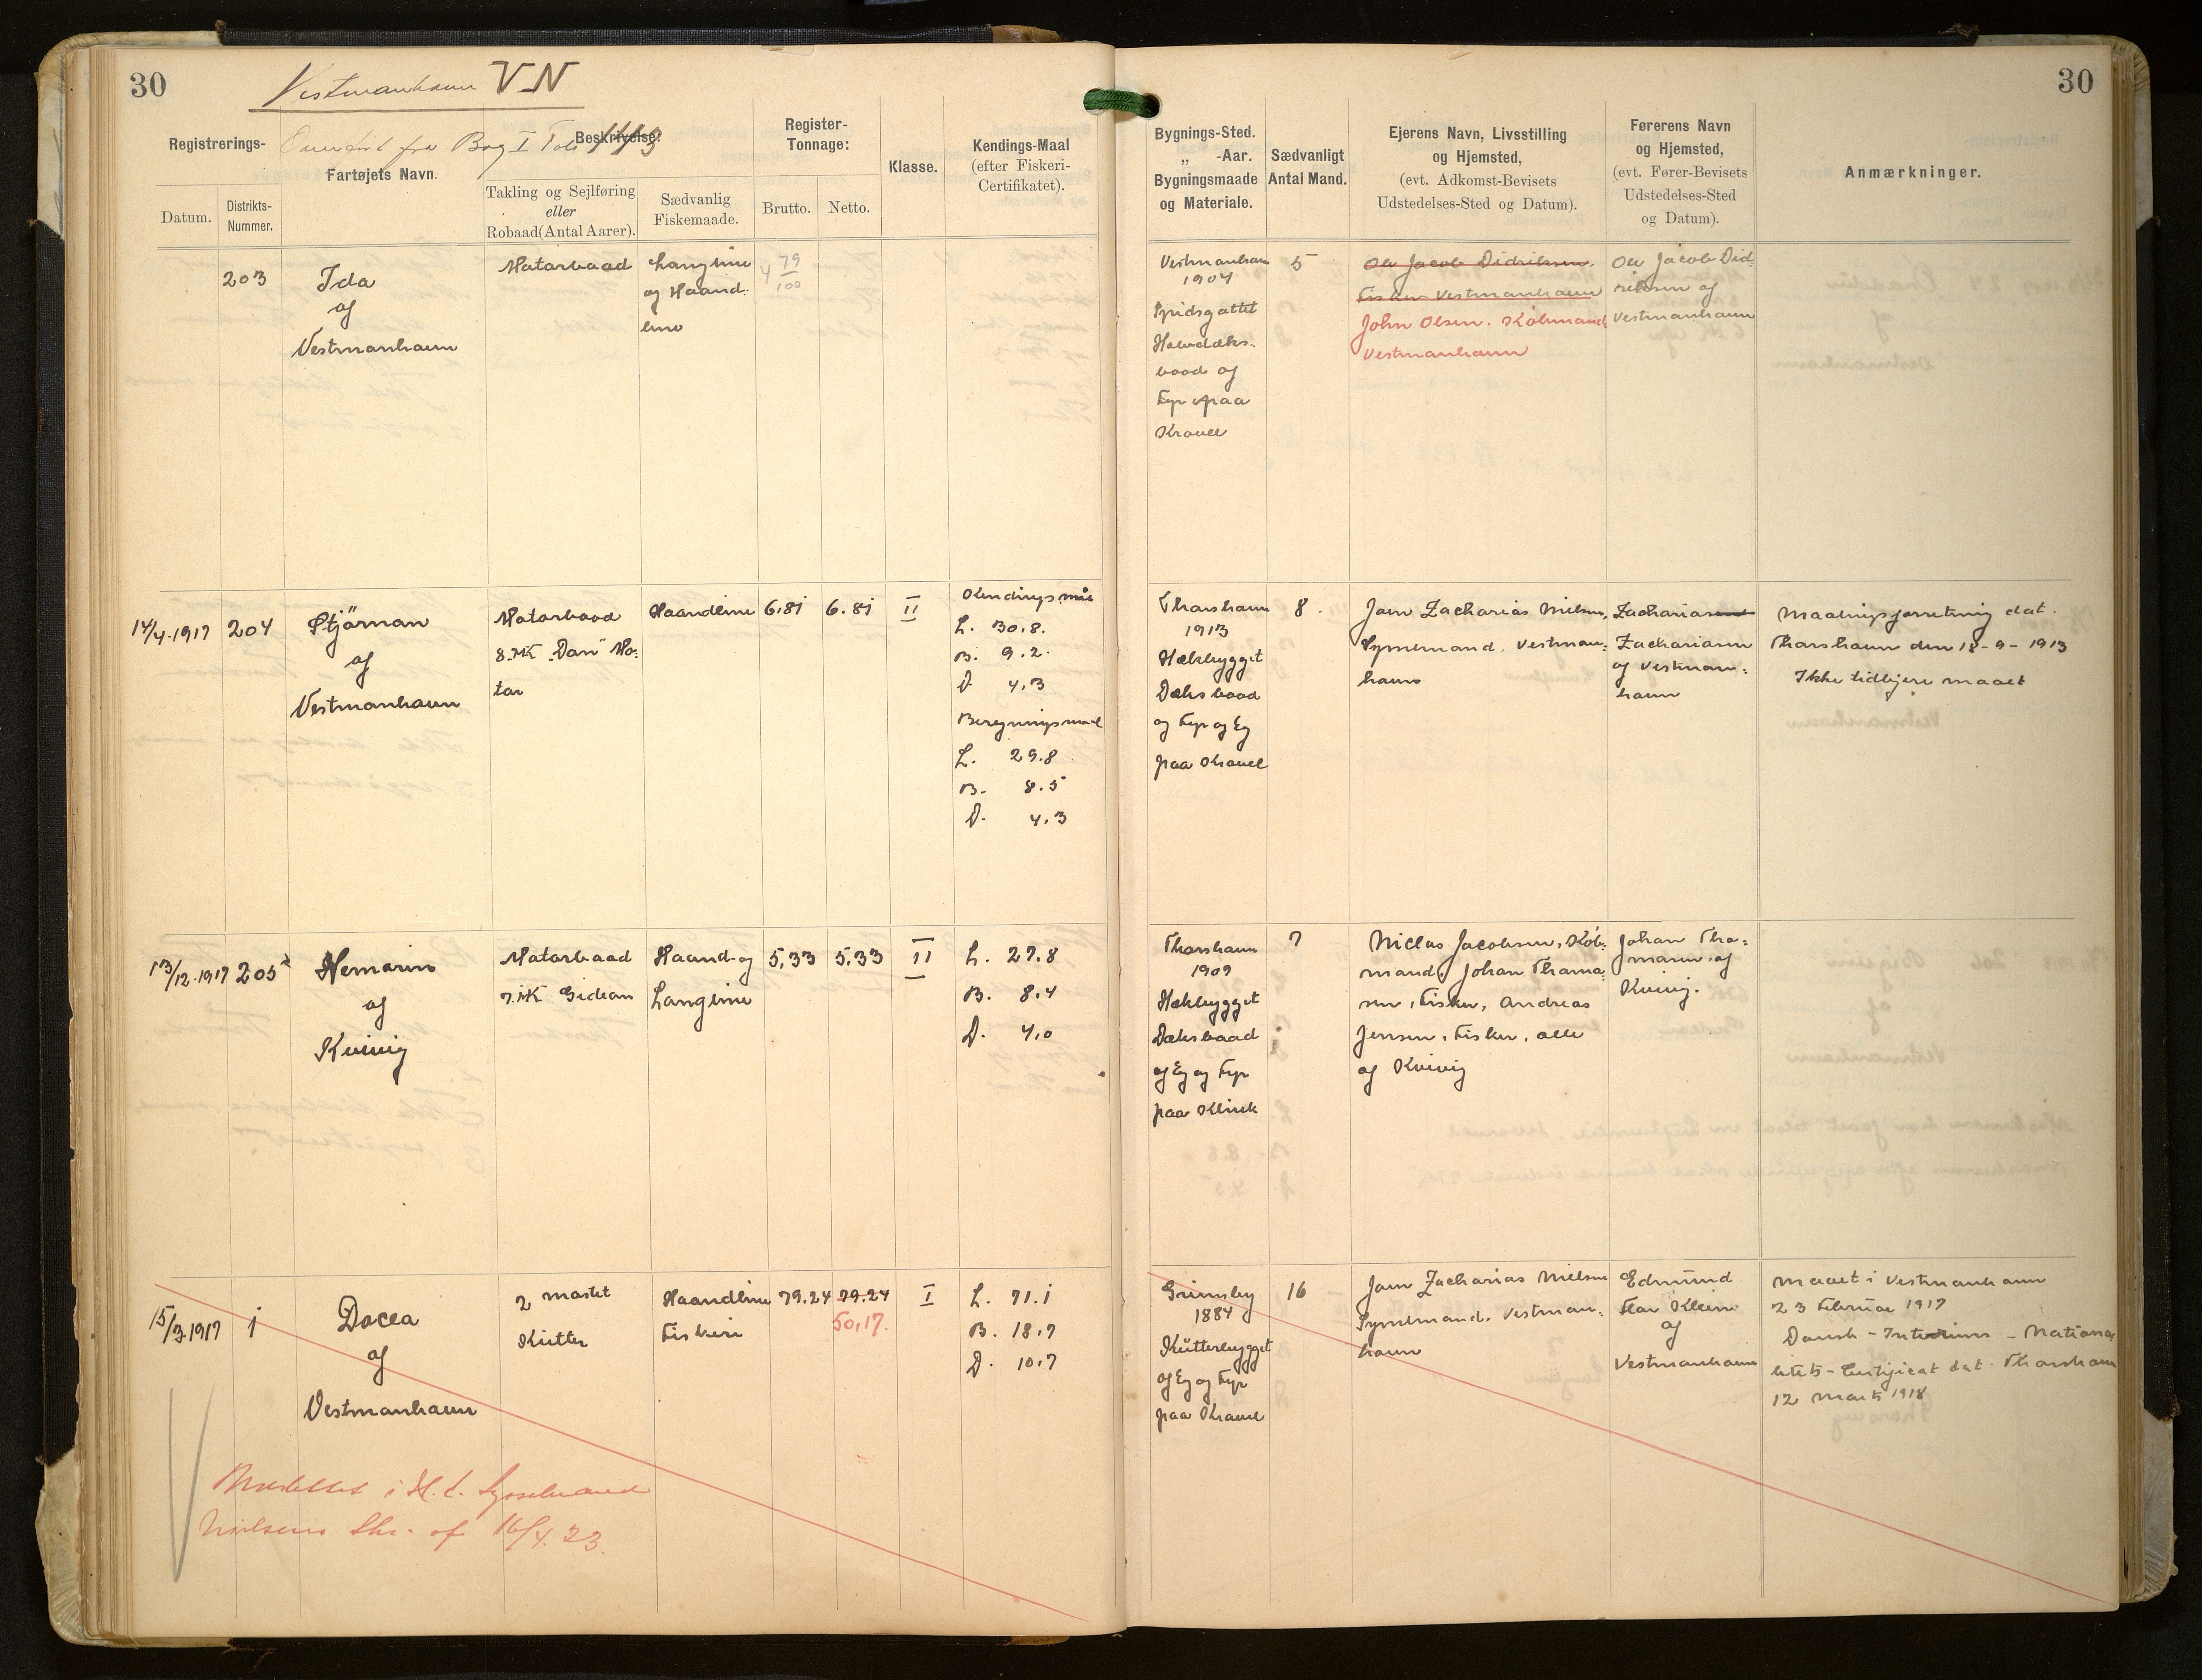 30
Vestmanhavn VN
Overført fra Bog I Fol. 113
Registrerings-
Datum.
Distrikts-
Nummer.
Fartøjets Navn.
Beskrivelse.
Takling og Sejlføring
eller
Robaad(Antal Aarer).
Sædvanlig
Fiskemaade.
Register-
Tonnage:
Brutto.
Netto.
Klasse.
Kendings-Maal
(efter Fiskeri-
Certifikatet).
Bygnings-Sted.
„ -Aar.
Bygningsmaade
og Materiale.
Sædvanligt
Antal Mand.
Ejerens Navn, Livsstilling
og Hjemsted,
(evt. Adkomst-Bevisets
Udstedelses-Sted og Datum).
Førerens Navn
og Hjemsted,
(evt. Fører-Bevisets
Udstedelses-Sted
og Datum).
Anmærkninger.
30
203
Ida
af
Vestmanhavn
Motorbaad
Langline
og Haand-
line
4 79/100
Vestmanhavn
1904
Spidsgattet
Halvdæks-
baad af
Fyr paa
Kravel
5
Ole Jacob Didriksen.
Fisker Vestmanhavn
John Olsen. Købmand
Vestmanhavn
Ole Jacob Did-
riksen af
Vestmanhavn
14/4.1917
204
Stjörnan
af
Vestmanhavn
Motorbaad
8.HK "Dan" Mo-
tor
Haandline
6.81
6.81
II
Kendingsmål
L. 30.8.
B. 9.2.
D. 4.3
Beregningsmaal
L. 29.8
B. 8.5
D. 4.3
Thorshavn
1913
Hækbygget
Dæksbaad
af Fyr og Eg
paa Kravel
8.
Joen Zacharias Nielsen,
Sysselmand. Vestman-
havn
Zacharias
Zachariasen
af Vestman-
havn
Maalingsforretning dat.
Thorshavn den 18-9-1913
Ikke tidligere maalt
13/12.1917
205
Nemarin
af
Kvivig
Motorbaad
7.HK Gideon
Haand- og
Langline
5,33
5,33
II
L. 27.8
B. 8.4
D. 4,0
Thorshavn
1909
Hækbygget
Dæksbaad
af Eg og Fyr
paa Klink
7
Niclas Jacobsen, Køb-
mand, Johan Thoma-
sen, Fisker, Andreas
Jensen, Fisker, alle
af Kvivig
Johan Tho-
masen af
Kvivig.
15/3.1917
1
Docea
af
Vestmanhavn
2 mastet
Kutter
Haandline
Fiskeri
79.24
79.24
50,17.
I
L. 71.1
B. 18.7
D. 10.7
Grimsby
1884
Kutterbygget
af Eg og Fyr
paa Kravel
16
Joen Zacharias Nielsen
Sysselmand. Vestman-
havn
Edmund
Flor Klein
af
Vestmanhavn
Maalt i Vestmanhavn
23 Februar 1917
Dansk-Interims-Nationa
litets-Certificat dat. Thorshavn
12 Marts 1918
Udslettet i H. t. Sysselmand
Nielsens Skr. af 16/4. 23.